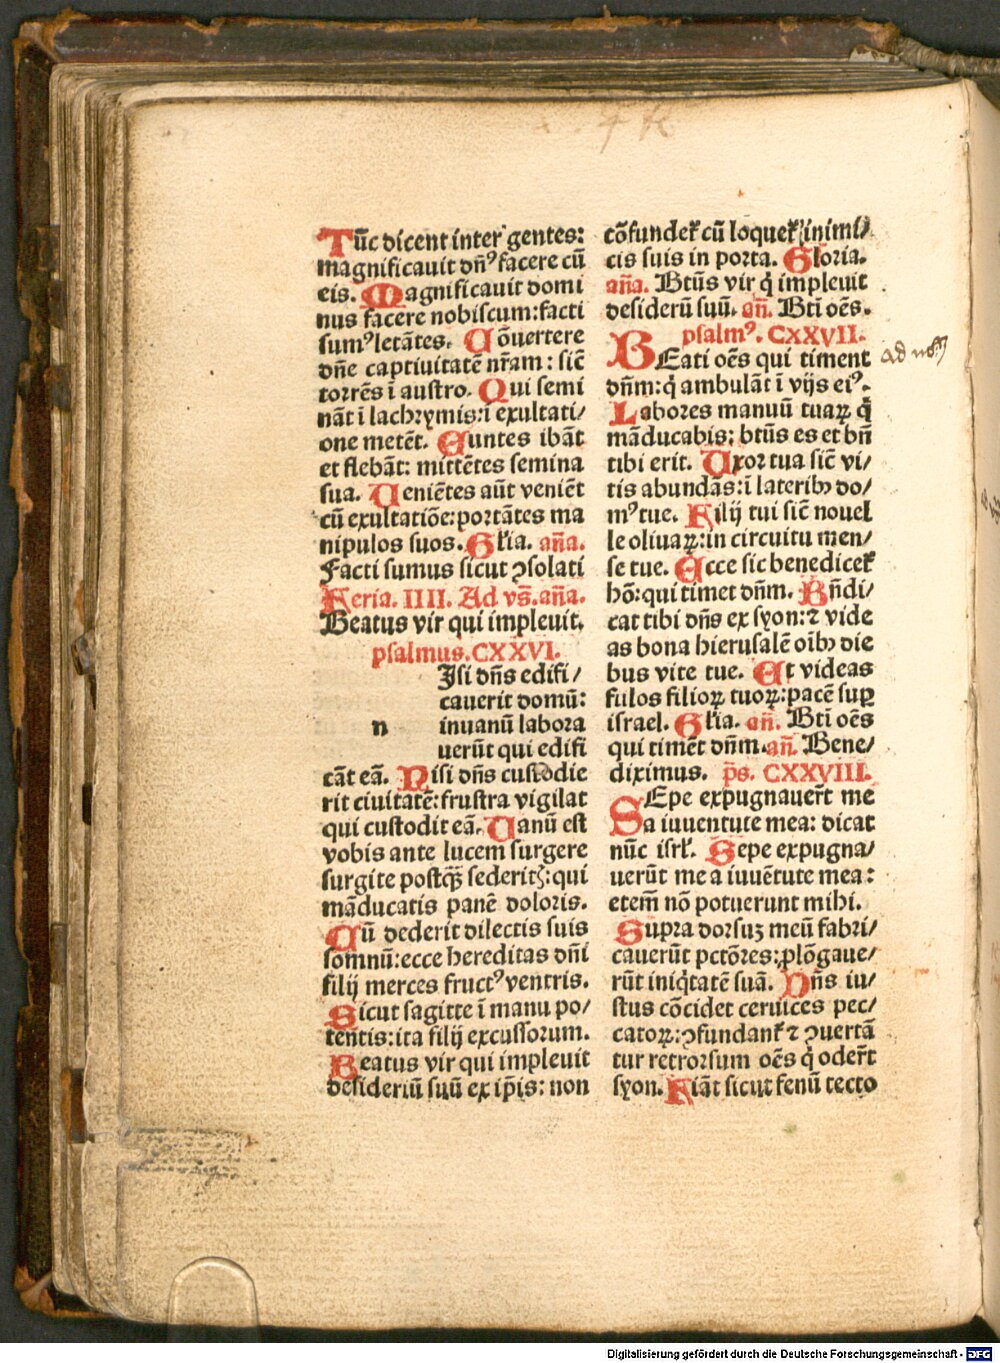 Tūc dicent inter gentes:
magnificauit dn̄ꝰ facere cū
eis. Magnificauit domi
nus facere nobiscum: facti
sumꝰ letātes. Cōuertere
dn̄e captiuitatē nr̄am: sic̄
torrēs ī austro. Qui semi
nāt ī lachrymis: ī exultati/
one metēt. Euntes ibāt
et flebāt: mittētes semina
sua. Ueniētes aūt veniēt
cū exultatiōe: portātes ma
nipulos suos. Gl̄ia. an̄a.
Facti sumus sicut ꝯsolati
Feria. IIII. Ad vs̄. an̄a.
Beatus vir qui impleuit.
psalmus. CXXVI.
Isi dn̄s edifi/
cauerit domū:
n inuanū labora
uerūt qui edifi
cāt eā. Nisi dn̄s custodie
rit ciuitatē: frustra vigilat
qui custodit eā. Uanū est
vobis ante lucem surgere
surgite postq̄ꝫ sederitꝭ: qui
māducatis panē doloris.
Cū dederit dilectis suis
somnū: ecce hereditas dn̄i
filij merces fructꝰ ventris.
Sicut sagitte ī manu po/
tentis: ita filij excussorum.
Beatus vir qui impleuit
desideriū suū ex ip̄is: non
cōfundet̄ cū loquet̄ inimi/
cis suis in porta. Gloria.
an̄a. Bt̄us vir q̇ impleuit
desideriū suū. an̄. Bt̄i oēs.
psalmꝰ. CXXVII.
BEati oēs qui timent
dn̄m: q̇ ambulāt ī vijs eiꝰ.
Labores manuū tuaꝝ q̄
māducabis: bt̄us es et bn̄
tibi erit. Uxor tua sic̄ vi/
tis abundās: ī lateribꝫ do/
mꝰ tue. Filij tui sic̄ nouel
le oliuaꝝ: in circuitu men/
se tue. Ecce sic benedicet̄
hō: qui timet dn̄m. Bn̄di/
cat tibi dn̄s ex syon: ⁊ vide
as bona hierusalē oībꝫ die
bus vite tue. Et videas
filios filioꝝ tuoꝝ: pacē suꝑ
israel. Gl̄ia. an̄. Bt̄i oēs
qui timēt dn̄m. an̄. Bene/
diximus. p̄s. CXXVIII.
SEpe expugnauer̄t me
a iuuentute mea: dicat
nūc isrl̄. Sepe expugna/
uerūt me a iuuētute mea:
eten̄ nō potuerunt mihi.
Supra dorsuꝫ meū fabri/
cauerūt pctōres: ꝓlōgaue/
rūt iniq̇tatē suā. Dn̄s iu/
stus cōcidet ceruices pec/
catoꝝ: ꝯfundant̄ ⁊ ꝯuertā
tur retrorsum oēs q̇ oder̄t
syon. Fiāt sicut fenū tecto
Digitalisierung gefördert durch die Deutsche Forschungsgemeinschaft - DFG